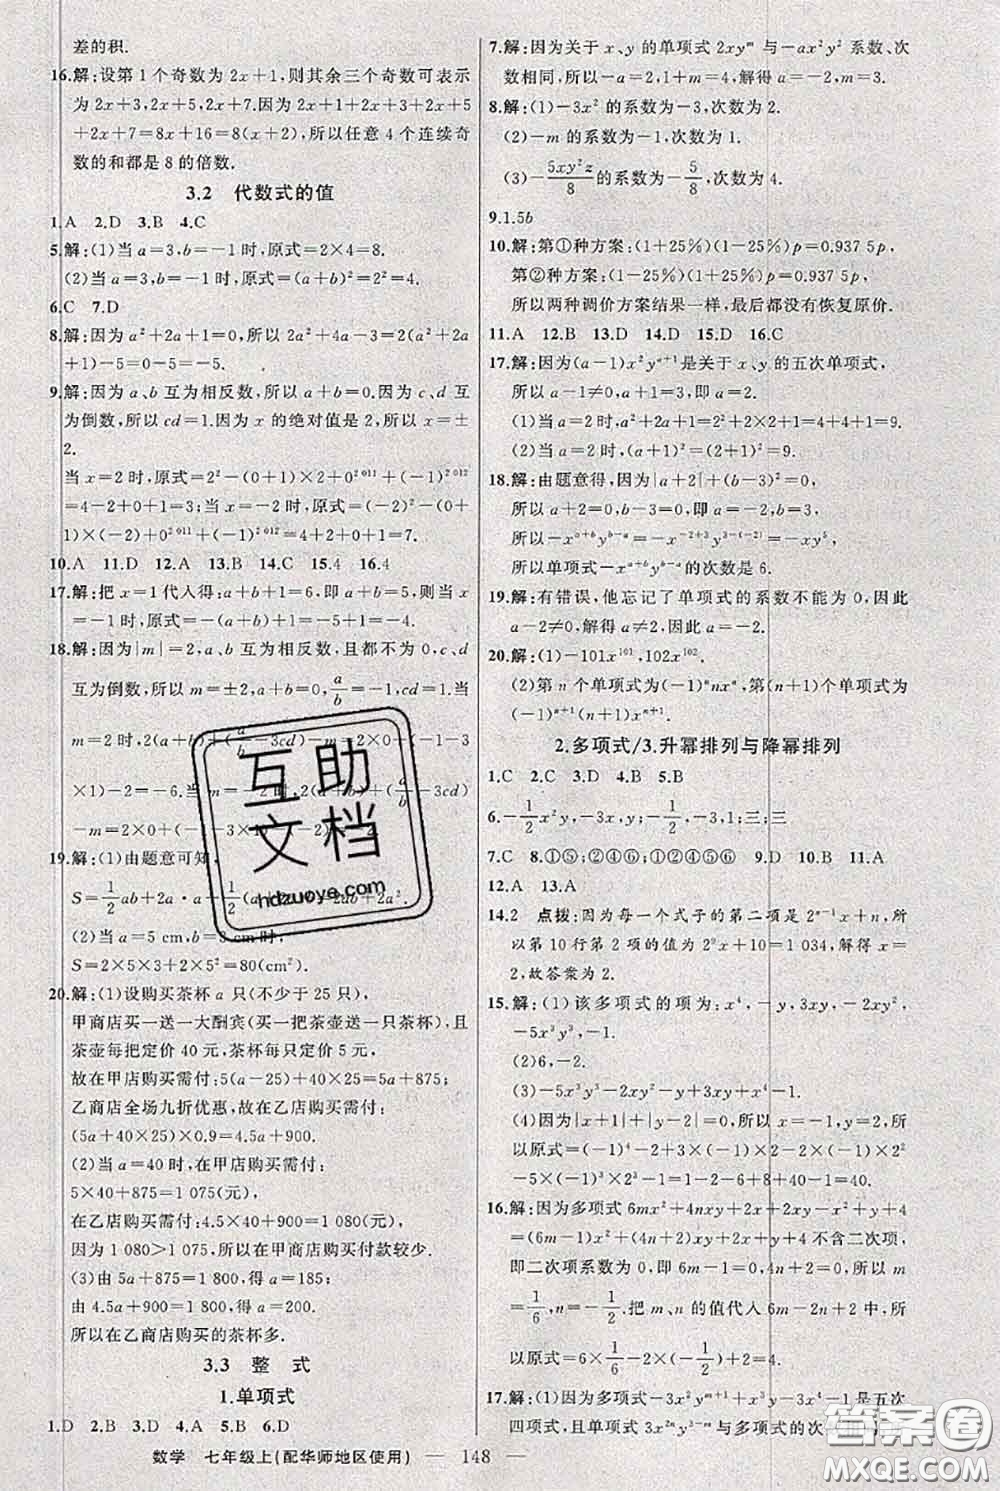 差的积.
16.解:设第 1 个奇数为 2x+1,则其余三个奇数可表示
为 2x+3,2x+5,2x+7.因为 2x+1+2x+3+2x+5
+2x+7=8x+16=8(x+2),所以任意 4 个连续奇
数的和都是 8 的倍数.
3.2 代数式的值
1.A 2.D 3.B 4.C
5.解:(1)当 a=3,b=-1 时,原式=2×4=8.
(2)当 a=3,b=-1 时,原式=2²=4.
6.C 7.D
8.解:因为 a²+2a+1=0,所以 2a²+4a-3=2(a²+2a
+1)-5=0-5=-5.
9.解:因为 a、b 互为相反数,所以 a+b=0.因为 c、d 互
为倒数,所以 cd=1.因为 x 的绝对值是 2,所以 x=±
2.
当 x=2 时,原式=2²-(0+1)×2+0²⁰¹¹+(-1)²⁰¹²
=4-2+0+1=3;当 x=-2 时,原式=(-2)²-(0+
1)×(-2)+0²⁰¹¹+(-1)²⁰¹²=4+2+0+1=7.
10.A 11.D 12.A 13.B 14.C 15.4 16.4
17.解:把 x=1 代入得:a+b+1=6,即 a+b=5,则当 x
=-1 时,原式=-(a+b)+1=-5+1=-4.
18.解:因为|m|=2,a、b 互为相反数,且都不为 0,c、d
互为倒数,所以 m=±2,a+b=0,a/b=-1,cd=1.当
m=2 时,2(a+b)+(a/b-3cd)-m=0+(-1-3
×1)-2=-6.当 m=-2 时,2(a+b)+(a/b-3cd)
-m=2×0+(-1-3×1)-(-2)=-2.
19.解:(1)由题意可知,
S=1/2ab+2a·a+1/2
ab+2a².
(2)当 a=5 cm,b=3 时,
S=2×5×3+2×5²=80(cm²).
20.解:(1)设购买茶杯 a 只(不少于 25 只),
甲商店买一送一大酬宾(买一把茶壶送茶杯一只),且
茶壶每把定价 40 元,茶杯每只定价 5 元,
故在甲店购买需付:5(a-25)+40×25=5a+875;
乙商店全场九折优惠,故在乙店购买需付:
(5a+40×25)×0.9=4.5a+900.
(2)当 a=40 时,在甲店购买需付:
5×40+875=1 075(元),
在乙店购买需付:4.5×40+900=1 080(元),
因为 1 080>1 075,所以在甲商店购买付款较少.
(3)由 5a+875=1 800,得 a=185;
由 4.5a+900=1 800,得 a=200.
所以在乙商店购买的茶杯多.
3.3 整 式
1.单项式
1.D 2.B 3.D 4.A 5.B 6.D
7.解:因为关于 x、y 的单项式 2xyᵐ 与-ax²y² 系数、次
数相同,所以-a=2,1+m=4,解得 a=-2,m=3.
8.解:(1)-3x² 的系数为-3,次数为 2.
(2)-m 的系数为-1,次数为 1.
(3)-5xy²z/8 的系数为-5/8,次数为 4.
9.1.5b
10.解:第①种方案:(1+25%)(1-25%)p=0.937 5p,
第②种方案:(1-25%)(1+25%)p=0.937 5p,
所以两种调价方案结果一样,最后都没有恢复原价.
11.A 12.B 13.D 14.D 15.D 16.C
17.解:因为(a-1)x²yᵃ⁺¹是关于 x、y 的五次单项式,
所以 a-1≠0,a+1=3,即 a=2.
(1)当 a=2 时,a²+2a+1=2²+2×2+1=9.
(2)当 a=2 时,(a+1)²=(2+1)²=9.
18.解:由题意得,因为|a+2|+(b-3)²=0,
所以 a+2=0,b-3=0,即 a=-2,b=3,
所以-xᵃ⁺ᵇyᵇ⁻ᵃ=-x⁻²⁺³y³⁻⁽⁻²⁾=-xy⁵,
所以单项式-xᵃ⁺ᵇyᵇ⁻ᵃ的次数是 6.
19.解:有错误,他忘记了单项式的系数不能为 0,因此
a-2≠0,解得 a≠2,因此 a=-2.
20.解:(1)-101x¹⁰¹,102x¹⁰².
(2)第 n 个单项式为(-1)ⁿnxⁿ,第(n+1)个单项式为
(-1)ⁿ⁺¹(n+1)xⁿ⁺¹.
2.多项式/3.升幂排列与降幂排列
1.C 2.C 3.D 4.B 5.B
6.-1/2x²y,-3x,y,1;-1/2,-3,1,1;三;三
7.C 8.①⑤;②④⑥;①②④⑤⑥ 9.D 10.B 11.A
12.A 13.A
14.2 点拨:因为每一个式子的第二项是 2ⁿ⁻¹x+n,所
以第 10 行第 2 项的值为 2⁹x+10=1 034,解得 x=
2,故答案为 2.
15.解:(1)该多项式的项为:x⁴,-y,3xy,-2xy²,
-5x³y³,-1.
(2)6,-2.
(3)-5x³y³-2xy²-y+3xy+x⁴-1.
(4)因为|x+1|+|y-2|=0,所以 x=-1,y=2,所
以原式=(-1)⁴-2+3×(-1)×2-2×(-1)×2²
-5×(-1)³×2³-1=1-2-6+8+40-1=40.
16.解:因为多项式 6mx²+4nxy+2x+2xy-x²+y+4
=(6m-1)x²+(4n+2)xy+2x+y+4 不含二次项,
即二次项系数为 0,即 6m-1=0,4n+2=0,所以 m
=1/6,n=-1/2.把 m、n 的值代入 6m-2n+2 中,所
以原式=6×1/6-2×(-1/2)+2=4.
17.解:(1)因为多项式-3x²yᵐ⁺¹+x³y-3x⁴-1 是五次
四项式,且单项式 3x²ⁿy³⁻ᵐ与多项式的次数
数学 七年级上(配华师地区使用) — 148 —
互助
文档
hdzuoye.com
答案圈
MXQE.COM